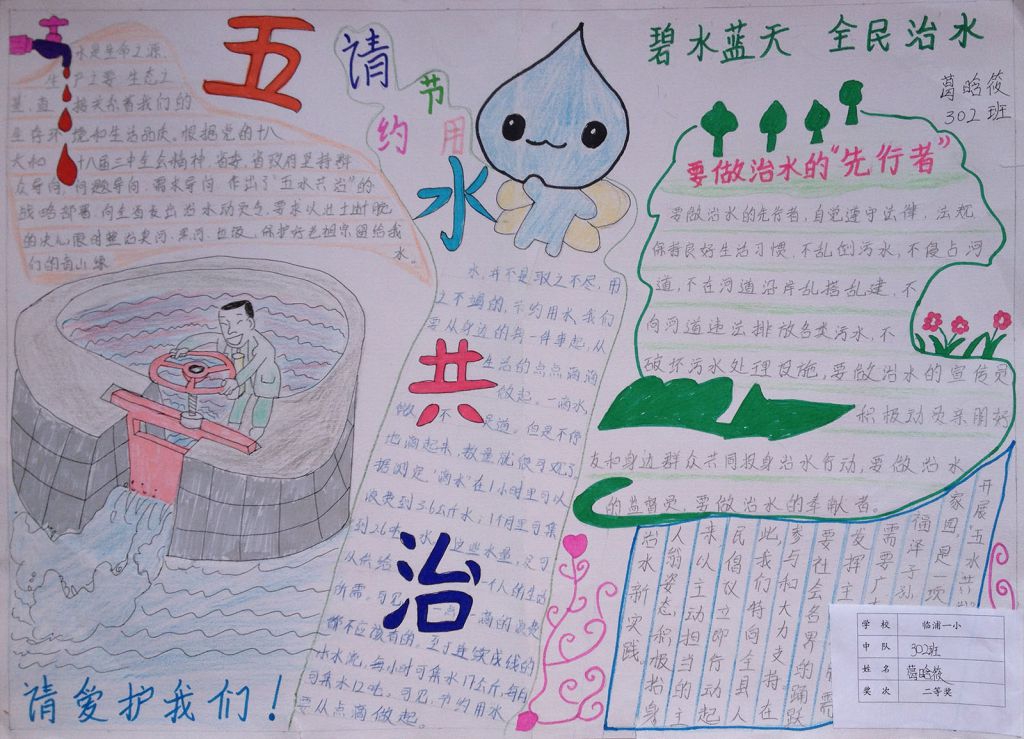 五水共治
请节约用水
碧水蓝天 全民治水
葛晗筱
302班
水是生命之源、
生产之要、生态之
基,直接关系着我们的
生存环境和生活品质。根据党的十八
大和十八届三中全会精神,省委、省政府坚持群
众导向、问题导向、需求导向,作出了"五水共治"的
战略部署,向全省发出治水动员令,要求以壮士断腕
的决心限时整治黑河、
保护好老祖宗留给我
们的青山绿
水。
请爱护我们!
水,并不是取之不尽,用
之不竭的,节约用水,我们
要从身边的每一件事起,从
生活的点点滴滴
做起。一滴水,
微不足道。但是不停
地滴起来,数量就很可观了。
据测定,"滴水"在1小时里可以
浪费到3.6公斤水;1个月里可集
到2.6吨水。这些水量,足可
以供给一个人的生活
所需。可见,一点一滴的浪费
都不应该有的。至于连续成线的
小水流,每小时可集水17公斤,每月
可集水12吨。可见,节约用水
要从点滴做起。
要做治水的"先行者"
要做治水的先行者,自觉遵守法律、法规,
保持良好生活习惯,不乱倒污水,不侵占河
道,不在河道沿岸乱搭乱建,不
向河道违法排放各类污水,不
破坏污水处理设施,要做治水的宣传员
积极动员亲朋好
友和身边群众共同投身治水行动,要做治水
的监督员,要做治水的奉献者。
开展"五水共
家园,是一项
福泽子孙
需要广
发挥主
要社会各界的踊跃
参与和大力支持,在
此,我们特向全县人
民倡议:立即行动起
来,以主动担当的主
人翁姿态积极投身
治水新实践。
学校 临浦一小
中队 302班
姓名 葛晗筱
奖次 二等奖